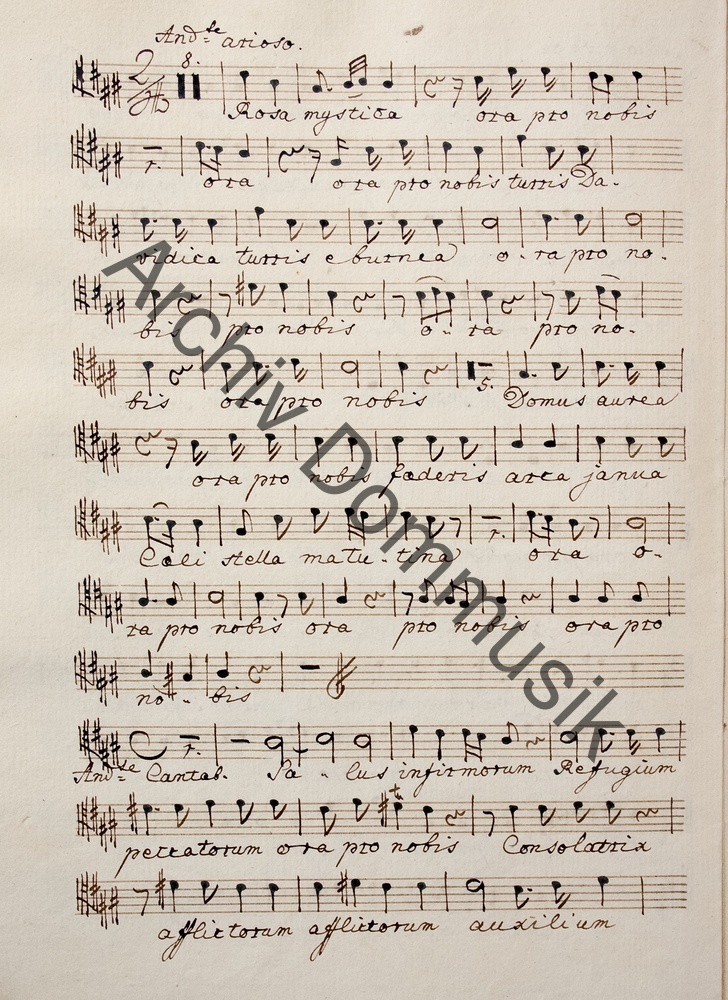 And:te arioso.
8.
Rosa mystica ora pro nobis
7.
ora ora pro nobis turris Da-
vidica turris eburnea o-ra pro no-
bis pro nobis o-ra pro no-
bis ora pro nobis 5. Domus aurea
ora pro nobis fœderis arca janua
Cœli stella matu-tina ora o-
ra pro nobis ora pro nobis ora pro
no-bis
And:te Cantab. Sa-lus infirmorum Refugium
peccatorum ora pro nobis Consolatrix
afflictorum afflictorum auxilium
Archiv Dommusik